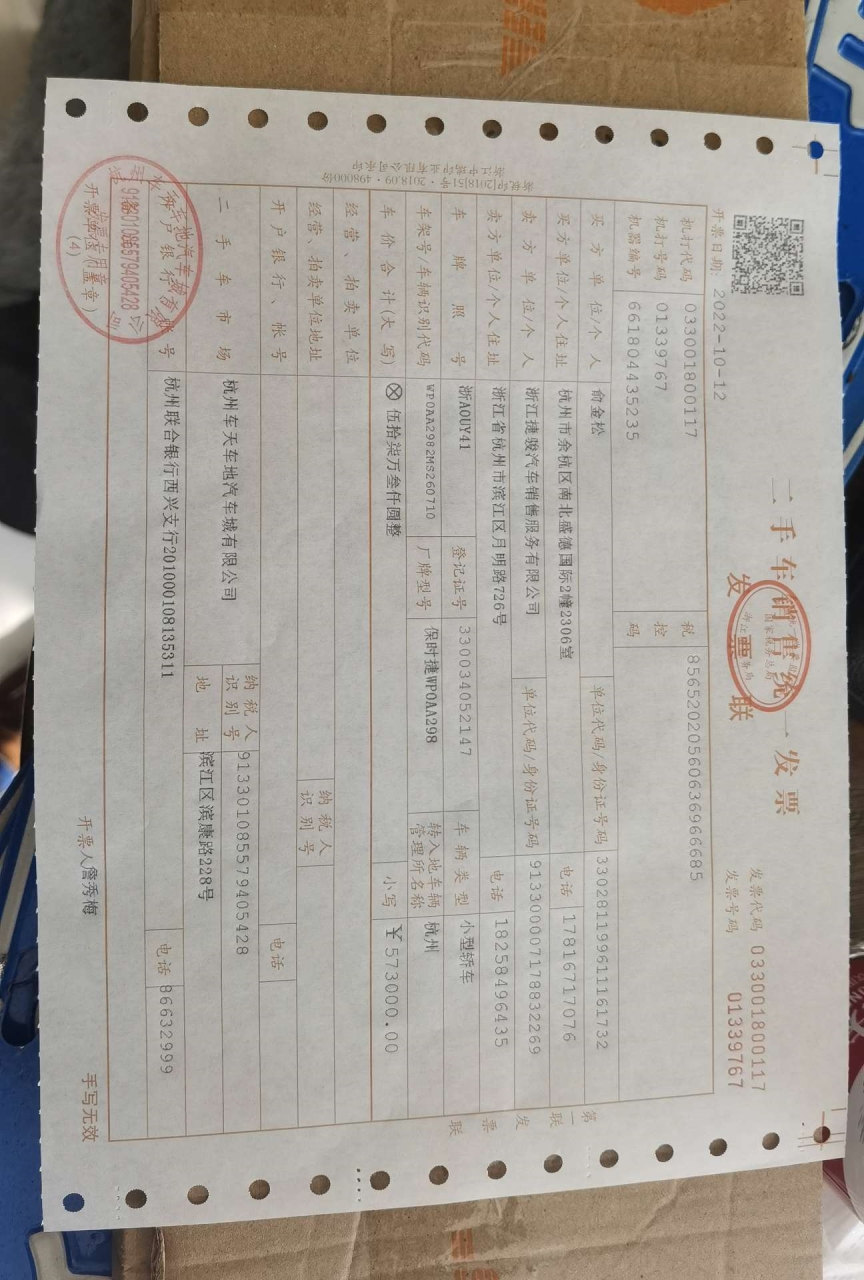 二手车销售统一发票
发票联
发票代码 033001800117
发票号码 01339767
开票日期: 2022-10-12
机打代码 033001800117
机打号码 01339767
机器编号 661804435235
税控码 85652020560636966685
买方单位/个人 俞金松 单位代码/身份证号码 330281199611161732
买方单位/个人住址 杭州市余杭区南北盛德国际2幢2306室 电话 17816717076
卖方单位/个人 浙江捷骏汽车销售服务有限公司 单位代码/身份证号码 913300007178832269
卖方单位/个人住址 浙江省杭州市滨江区月明路726号 电话 18258496435
车牌照号 浙A0UY41 登记证号 330034052147 车辆类型 小型轿车
车架号/车辆识别代码 WP0AA2982MS260710 厂牌型号 保时捷WP0AA298 转入地车辆管理所名称 杭州
车价合计(大写) ⊗ 伍拾柒万叁仟圆整 小写 ¥573000.00
经营、拍卖单位
经营、拍卖单位地址 纳税人识别号
开户银行、帐号 电话
二手车市场 杭州车天车地汽车城有限公司 纳税人识别号 913301085579405428
地址 滨江区滨康路228号
开户银行、帐号 杭州联合银行西兴支行201000108135311 电话 86632999
开票单位(盖章) 开票人 詹秀梅 手写无效
发票专用章
(4)
913301085579405428
第一联 发票联
浙税印[2018]51号·2018.09·498000份
浙江中瑞印业有限公司承印
国家税务总局